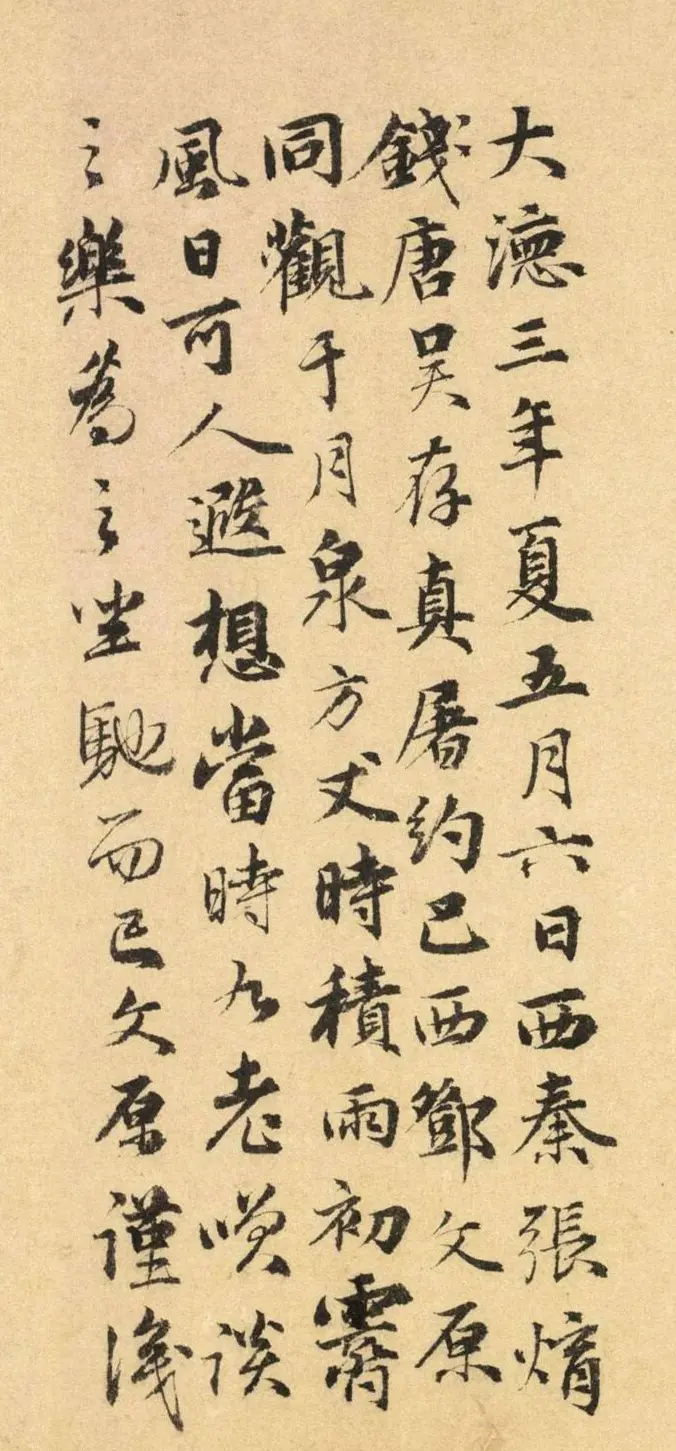 大德三年夏五月六日西秦張焴
錢唐吴存真屠約巴西鄧文原
同觀于月泉方丈時積雨初霽
風日可人遐想當時九老笑談
之樂為之坐馳而已文原謹識